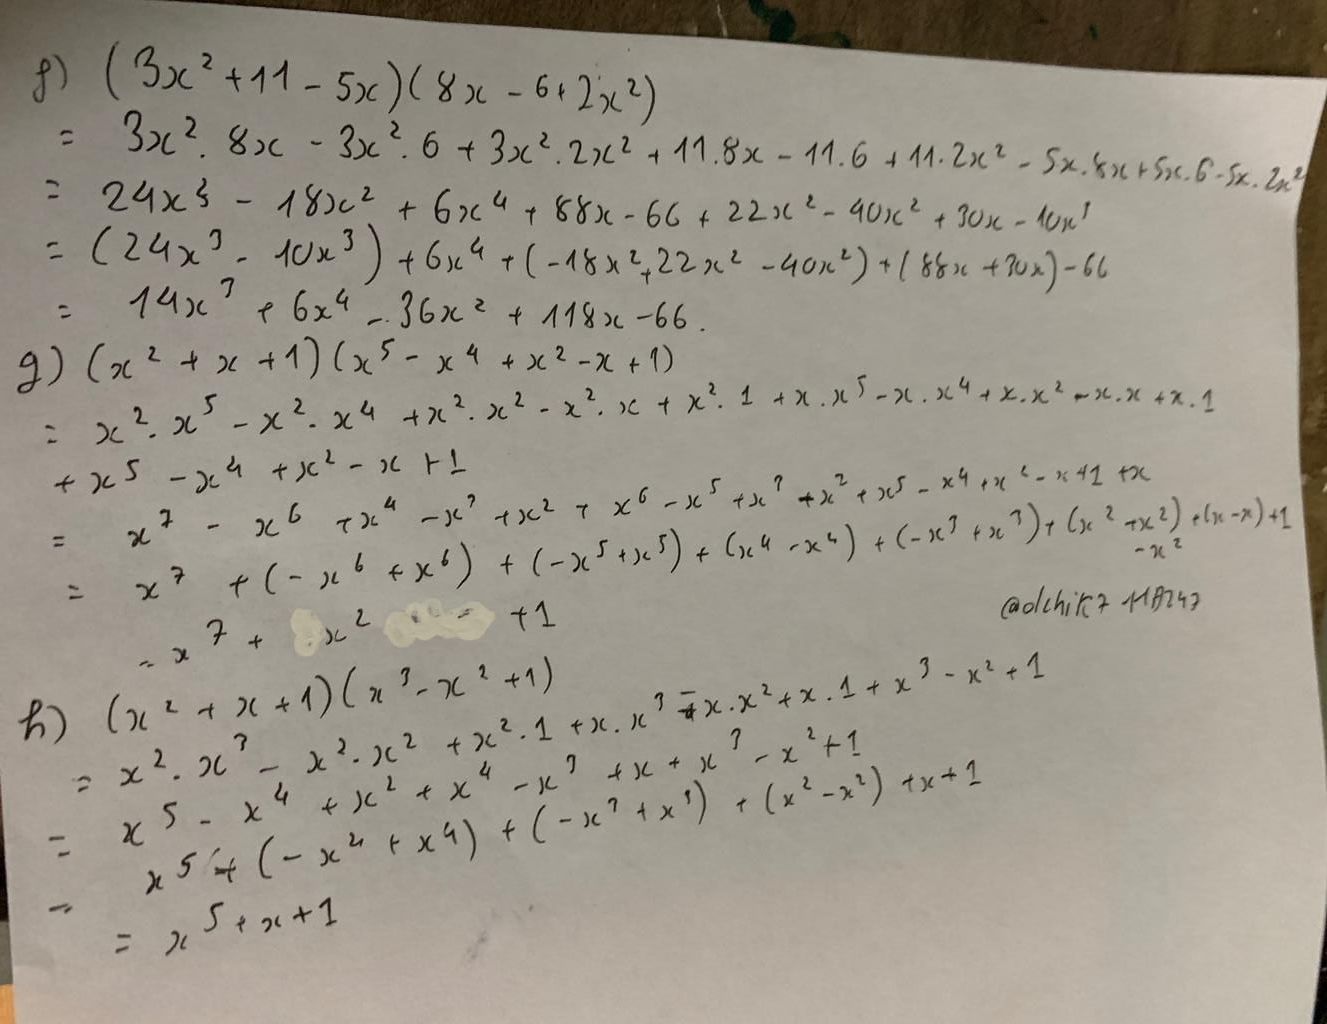 f) (3x² + 11 - 5x)(8x - 6 + 2x²)
= 3x². 8x - 3x². 6 + 3x². 2x² + 11.8x - 11.6 + 11.2x² - 5x.8x + 5x.6 - 5x.2x²
= 24x³ - 18x² + 6x⁴ + 88x - 66 + 22x² - 40x² + 30x - 10x³
= (24x³ - 10x³) + 6x⁴ + (-18x² + 22x² - 40x²) + (88x + 30x) - 66
= 14x³ + 6x⁴ - 36x² + 118x - 66.
g) (x² + x + 1)(x⁵ - x⁴ + x² - x + 1)
= x². x⁵ - x². x⁴ + x². x² - x². x + x². 1 + x. x⁵ - x. x⁴ + x. x² - x. x + x. 1
+ x⁵ - x⁴ + x² - x + 1
= x⁷ - x⁶ + x⁴ - x³ + x² + x⁶ - x⁵ + x³ + x² + x⁵ - x⁴ + x² - x + 1 + x
= x⁷ + (-x⁶ + x⁶) + (-x⁵ + x⁵) + (x⁴ - x⁴) + (-x³ + x³) + (x² + x²) + (x - x) + 1
- x²
= x⁷ + x² + 1
h) (x² + x + 1)(x³ - x² + 1)
= x². x³ - x². x² + x². 1 + x. x³ - x. x² + x. 1 + x³ - x² + 1
= x⁵ - x⁴ + x² + x⁴ - x³ + x + x³ - x² + 1
= x⁵ + (-x⁴ + x⁴) + (-x³ + x³) + (x² - x²) + x + 1
= x⁵ + x + 1